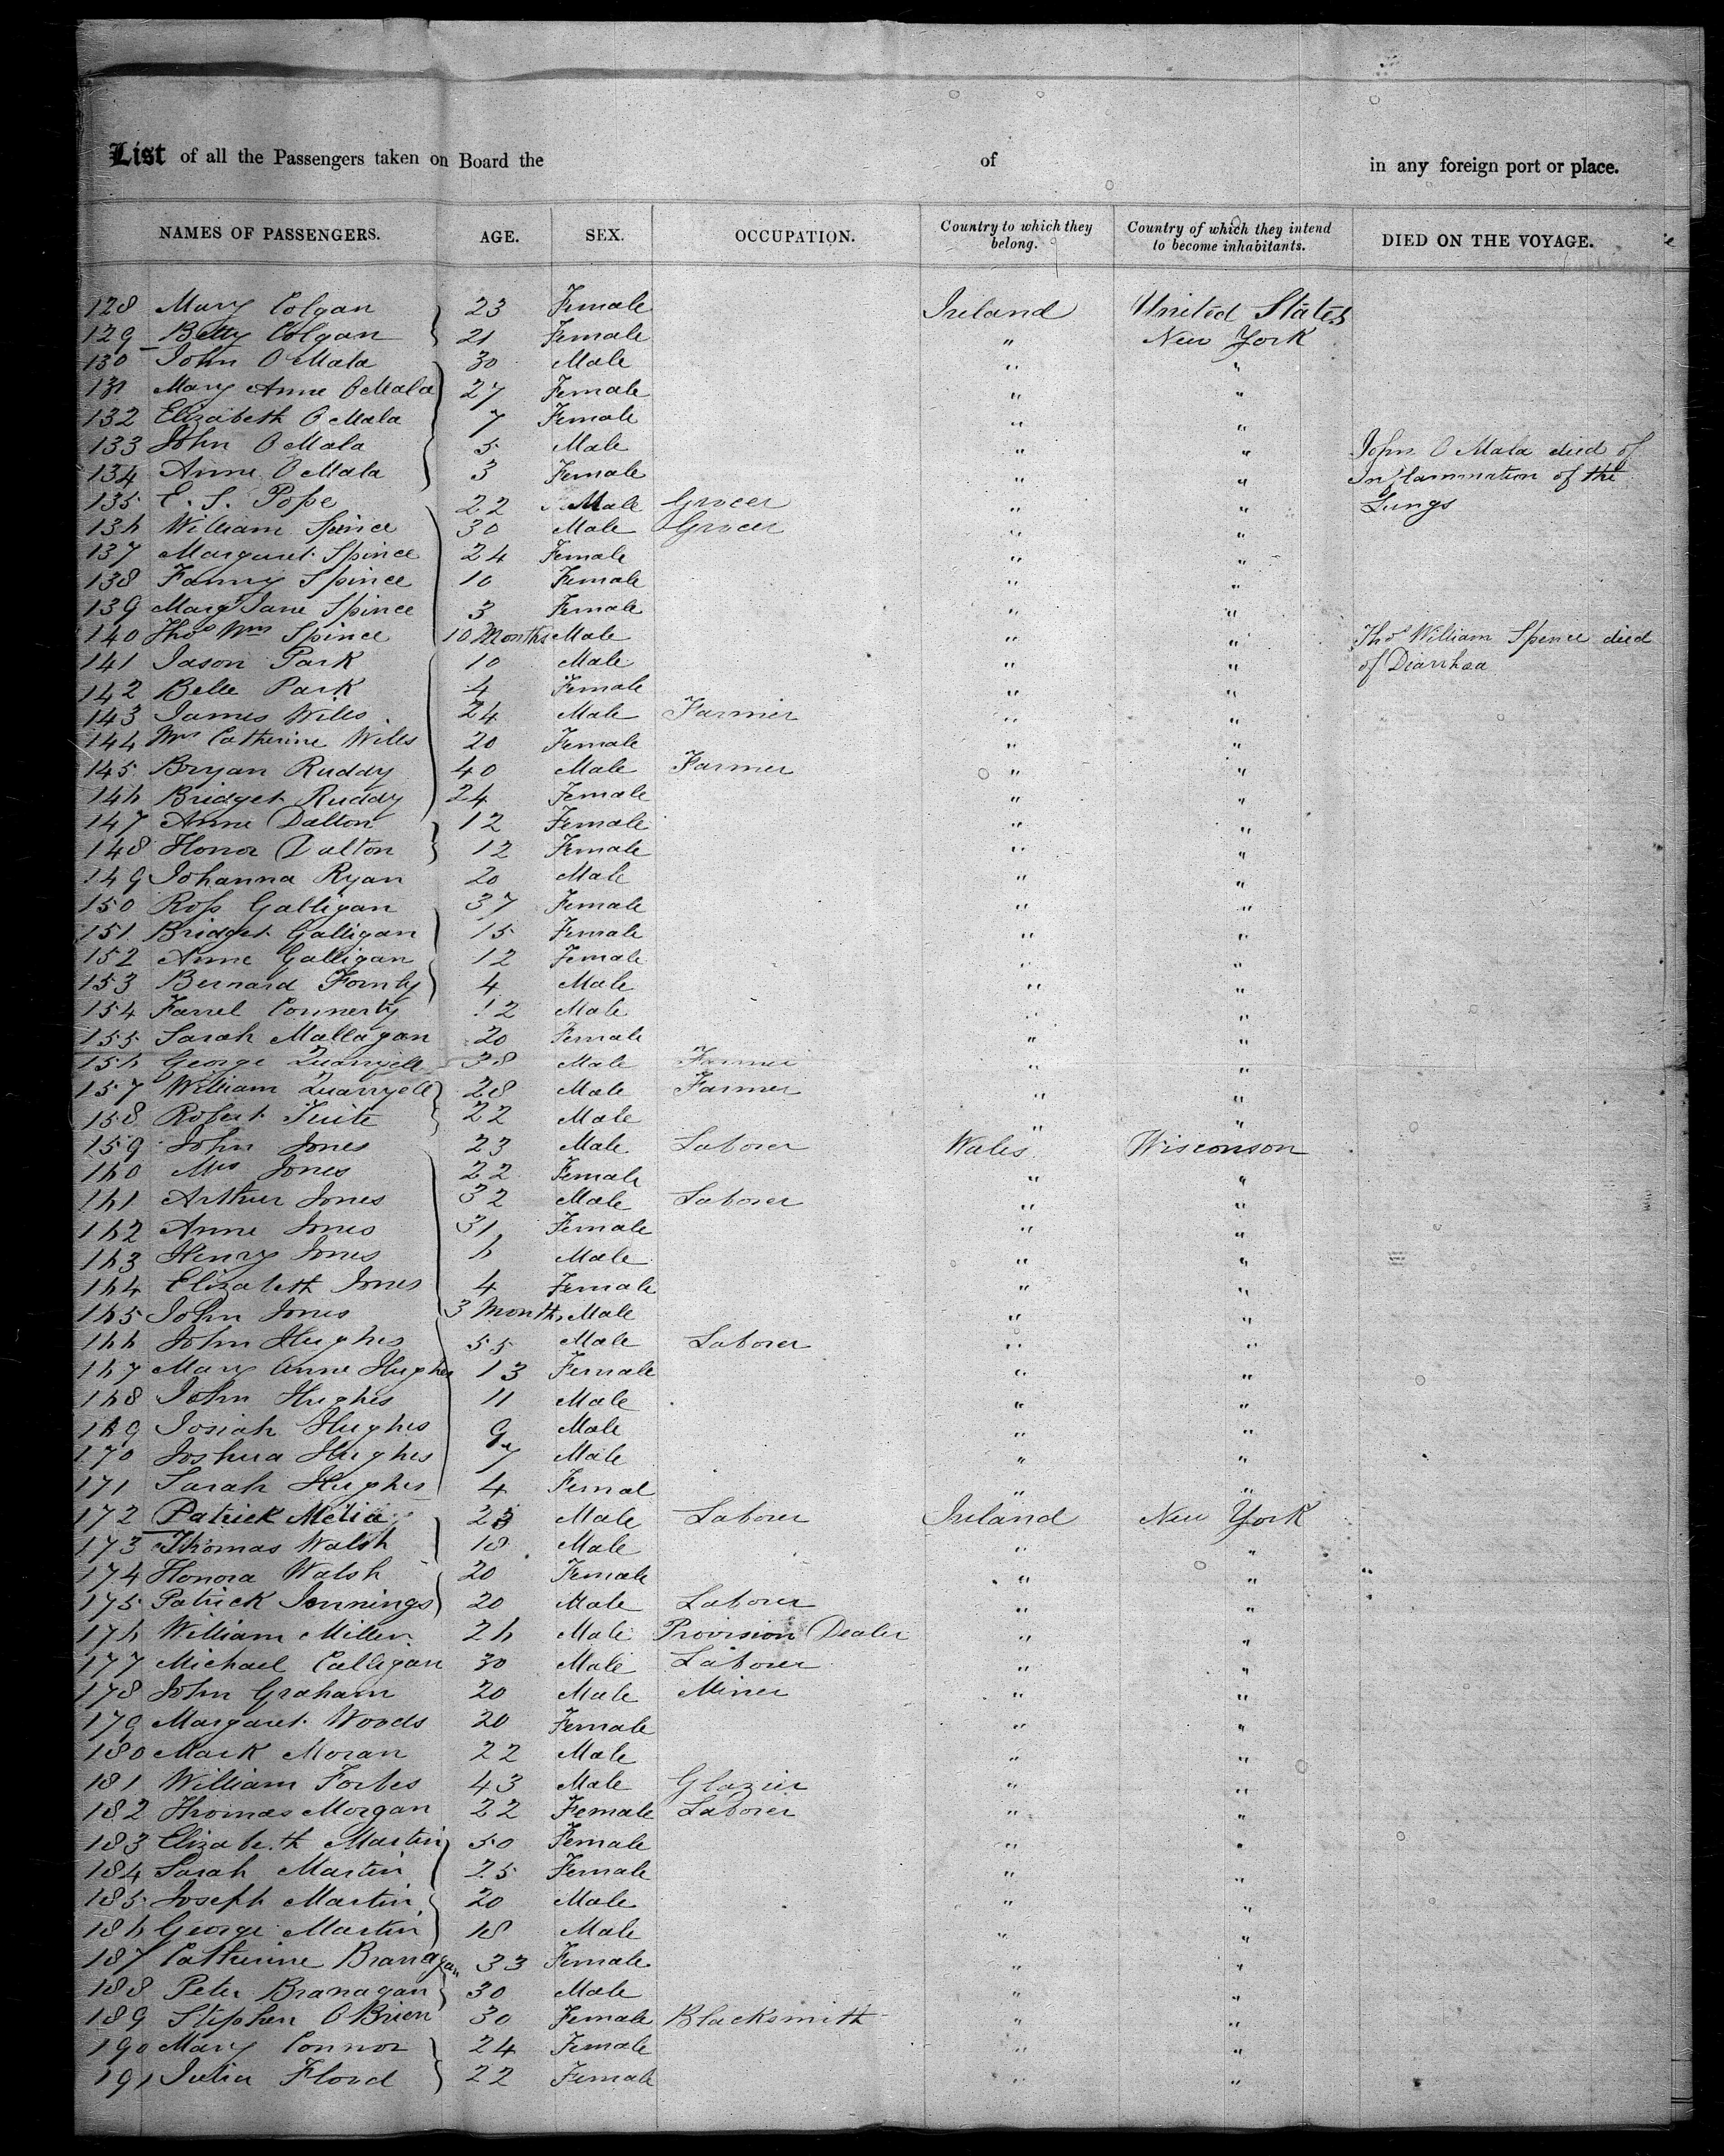 List of all the Passengers taken on Board the of in any foreign port or place.
NAMES OF PASSENGERS. AGE. SEX. OCCUPATION. Country to which they belong. Country of which they intend to become inhabitants. DIED ON THE VOYAGE.
128 Mary Colgan 23 Female Ireland United States
129 Betty Colgan 21 Female " New York
130 John O Mala 30 Male " "
131 Mary Anne O Mala 27 Female " "
132 Elizabeth O Mala 7 Female " "
133 John O Mala 5 Male " " John O Mala died of
134 Anne O Mala 3 Female " " Inflammation of the
135 E. S. Pope 22 Male Grocer " " Lungs
136 William Spince 30 Male Grocer " "
137 Margaret Spince 24 Female " "
138 Fanny Spince 10 Female " "
139 Margt Jane Spince 3 Female " "
140 Thos Wm Spince 10 Months Male " " Thos William Spence died
141 Jason Park 10 Male " " of Diarrhoea
142 Belle Park 4 Female " "
143 James Wills 24 Male Farmer " "
144 Mrs Catherine Wills 20 Female " "
145 Bryan Ruddy 40 Male Farmer " "
146 Bridget Ruddy 24 Female " "
147 Anne Dalton 12 Female " "
148 Honor Dalton 12 Female " "
149 Johanna Ryan 20 Male " "
150 Ross Galligan 37 Female " "
151 Bridget Galligan 15 Female " "
152 Anne Galligan 12 Female " "
153 Bernard 4 Male " "
154 Farrel Connerty 12 Male " "
155 Sarah Mallagan 20 Female " "
156 George Quarryell 38 Male Farmer " "
157 William Quarryell 28 Male Farmer " "
158 Robert Tuite 22 Male " "
159 John Jones 23 Male Laborer Wales Wisconson
160 Mrs Jones 22 Female " "
161 Arthur Jones 32 Male Laborer " "
162 Anne Jones 31 Female " "
163 Henry Jones 6 Male " "
164 Elizabeth Jones 4 Female " "
165 John Jones 3 Months Male " "
166 John Hughes 55 Male Laborer " "
167 Mary Anne Hughes 13 Female " "
168 John Hughes 11 Male " "
169 Josiah Hughes 9 Male " "
170 Joshua Hughes 7 Male " "
171 Sarah Hughes 4 Femal " "
172 Patrick Melia 23 Male Laborer Ireland New York
173 Thomas Walsh 18 Male " "
174 Honora Walsh 20 Female " "
175 Patrick Jennings 20 Male Laborer " "
176 William Miller 26 Male Provision Dealer " "
177 Michael Calligan 30 Male Laborer " "
178 John Graham 20 Male Miner " "
179 Margaret Woods 20 Female " "
180 Mark Moran 22 Male " "
181 William Forbes 43 Male Glazier " "
182 Thomas Morgan 22 Female Laborer " "
183 Elizabeth Martin 50 Female " "
184 Sarah Martin 25 Female " "
185 Joseph Martin 20 Male " "
186 George Martin 18 Male " "
187 Catherine Branagan 33 Female " "
188 Peter Branagan 30 Male " "
189 Stephen O Brien 30 Female Blacksmith " "
190 Mary Connor 24 Female " "
191 Julia Flood 22 Female " "